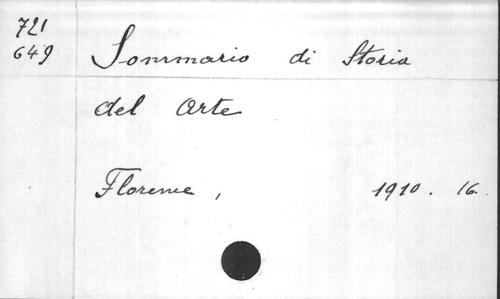 721
649
Sommario di Storia
del Arte
Florence, 1910. 16.